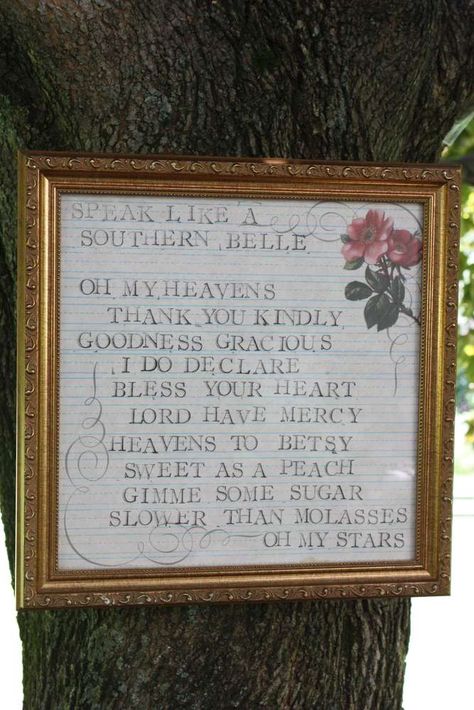 SPEAK LIKE A
SOUTHERN BELLE
OH MY HEAVENS
THANK YOU KINDLY
GOODNESS GRACIOUS
I DO DECLARE
BLESS YOUR HEART
LORD HAVE MERCY
HEAVENS TO BETSY
SWEET AS A PEACH
GIMME SOME SUGAR
SLOWER THAN MOLASSES
OH MY STARS